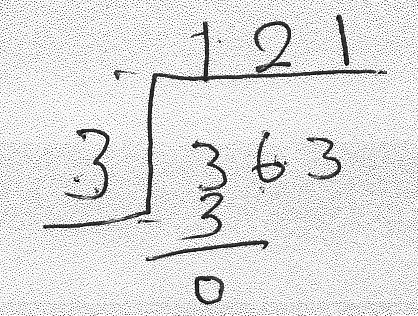 121
3 363
3
0